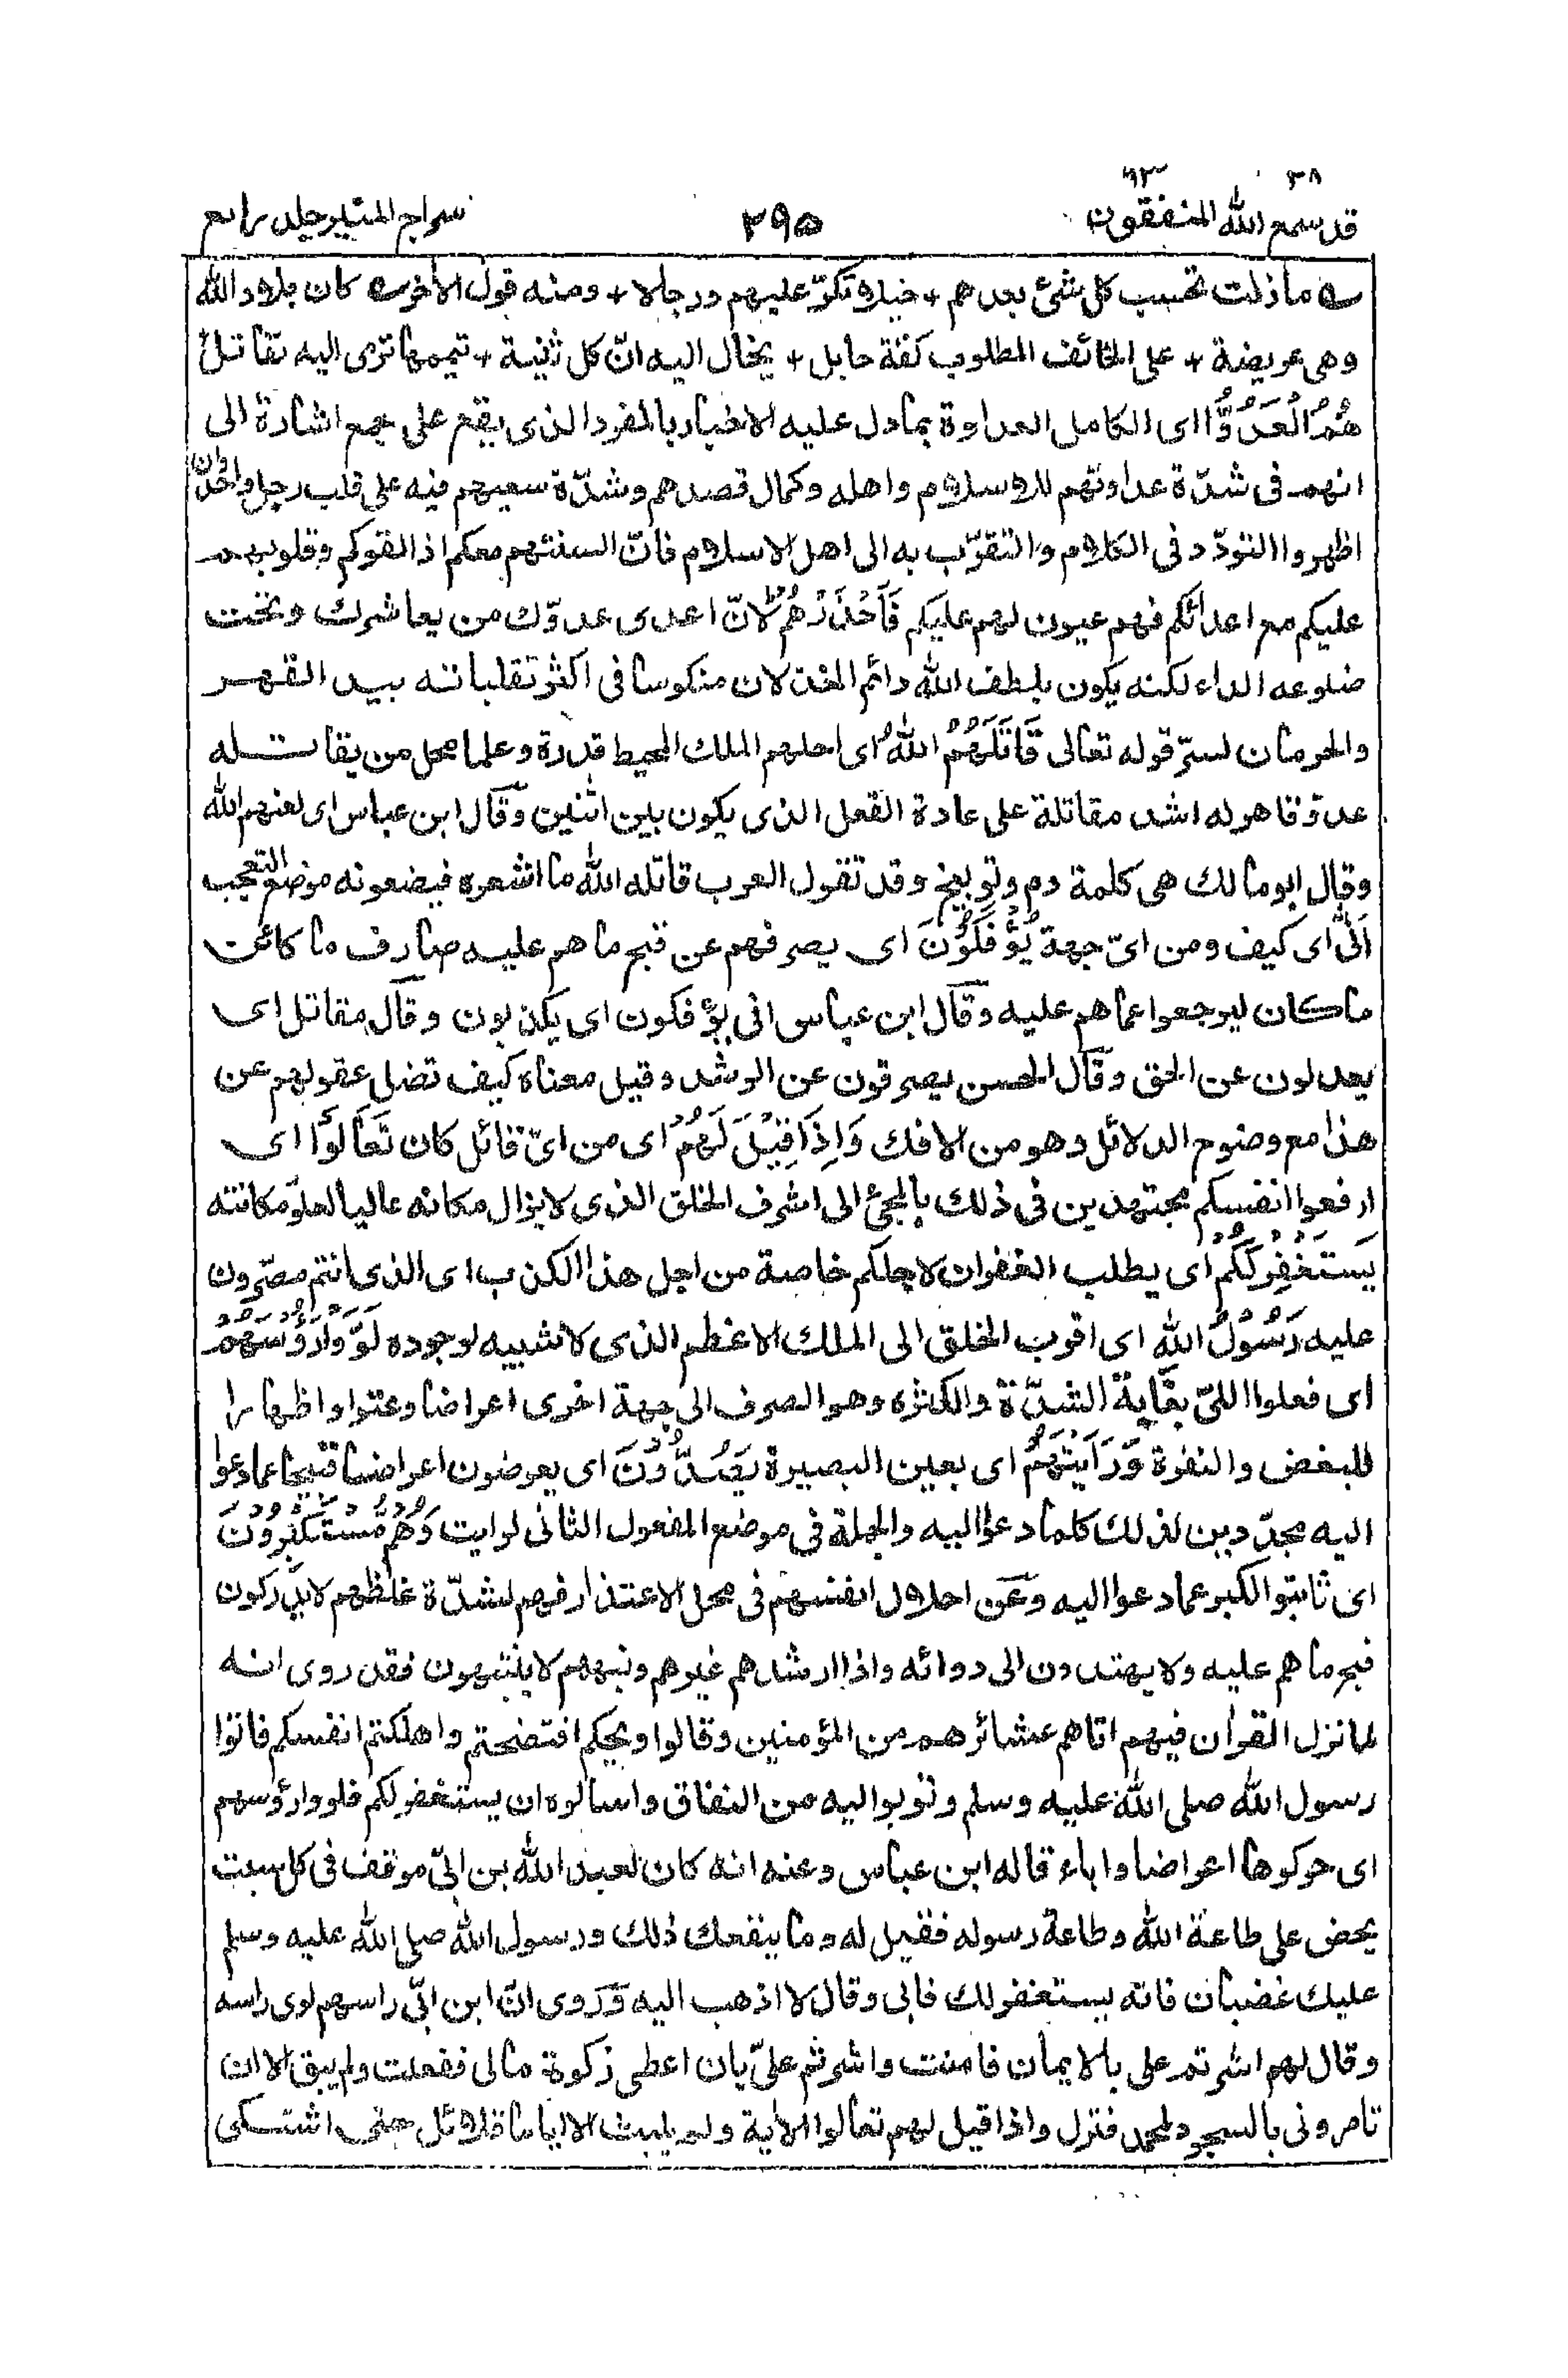 ٢٨ ٦٣
قد سمع الله المنفقون ٢٩٥ سراج المنير جلد رابع
ما زلت تحسب كل شئ بعدهم + خيلا تكرّ عليهم ورجالا + ومنه قول الأخر كان بلاد الله
وهى عريضة + على الخائف المطلوب كفة حابل + يخال اليه انّ كل ثنية + تيممها ترمى اليه بقاتل
هُمُ الْعَدُوُّ اى الكامل العداوة بما دل عليه الاخبار بالمفرد الذى يقع على جمع اشارة الى
انهم فى شدّة عداوتهم للاسلام واهله وكمال قصدهم وشدّة سعيهم فيه على قلب رجل واحد وان
اظهروا التودّد فى الكلام والتقرّب به الى اهل الاسلام فانّ السنتهم معكم اذا لقوكم وقلوبهم
عليكم مع اعدائكم فهم عيون لهم عليكم فَاحْذَرْهُمْ لانّ اعدى عدوّك من يعاشرك وتحت
ضلوعه الداء لكنه يكون بلطف الله دائم الخذلان منكوسا فى اكثر تقلباته بيد القهر
والحرمان لسرّ قوله تعالى قَاتَلَهُمُ اللهُ اى احلهم الملك المحيط قدرة وعلما محل من يقاتله
عدوّ قاهر له اشد مقاتلة على عادة الفعل الذى يكون بين اثنين وقال ابن عباس اى لعنهم الله
وقال ابو مالك هى كلمة ذم وتوبيخ وقد تقول العرب قاتله الله ما اشعره فيضعونه موضع التعجب
اَنّٰى اى كيف ومن اىّ جهة يُؤْفَكُوْنَ اى يصرفهم عن قبح ما هم عليه صارف ما كائن
ما كان ليرجعوا عما هم عليه وقال ابن عباس انى يؤفكون اى يكذبون وقال مقاتل اى
يعدلون عن الحق وقال الحسن يصرفون عن الرشد وقيل معناه كيف تضل عقولهم عن
هذا مع وضوح الدلائل وهو من الافك وَاِذَا قِيْلَ لَهُمْ اى من اىّ قائل كان تَعَالَوْا اى
ارفعوا انفسكم مجتهدين فى ذلك بالمجئ الى اشرف الخلق الذى لا يزال مكانه عاليا لعلوّ مكانته
يَسْتَغْفِرْ لَكُمْ اى يطلب الغفران لاجلكم خاصة من اجل هذا الكذب اى الذى انتم مصرّون
عليه رَسُوْلُ اللهِ اى اقرب الخلق الى الملك الاعظم الذى لا شبيه لوجوده لَوَّوْا رُؤُسَهُمْ
اى فعلوا اللىّ بغاية الشدّة والكثرة وهو الصرف الى جهة اخرى اعراضا وعتوا واظهارا
للبغض والنفرة وَرَاَيْتَهُمْ اى بعين البصيرة يَصُدُّوْنَ اى يعرضون اعراضا قبيحا عما دعوا
اليه مجدّدين لذلك كلما دعوا اليه والجملة فى موضع المفعول الثانى لرايت وَهُمْ مُّسْتَكْبِرُوْنَ
اى ثابتوا الكبر عما دعوا اليه وعن احلال انفسهم فى محل الاعتذار فهم لشدّة غلظهم لا يدركون
قبح ما هم عليه ولا يهتدون الى دوائه واذا ارشدهم غيرهم ونبههم لا ينتبهون فقد روى انه
لما نزل القرأن فيهم اتاهم عشائرهم من المؤمنين وقالوا ويحكم افتضحتم واهلكتم انفسكم فاتوا
رسول الله صلى الله عليه وسلم وتوبوا اليه من النفاق واسالوه ان يستغفر لكم فلووا رؤسهم
اى حركوها اعراضا واباء قاله ابن عباس وعنه انه كان لعبد الله بن ابىّ موقف فى كل سبت
يحض على طاعة الله وطاعة رسوله فقيل له وما ينفعك ذلك ورسول الله صلى الله عليه وسلم
عليك غضبان فاته يستغفر لك فابى وقال لا اذهب اليه وروى انّ ابن ابىّ راسهم لوى راسه
وقال لهم اشرتم على بالايمان فامنت واشرتم علىّ بان اعطى زكوة مالى ففعلت ولم يبق الا ان
تامرونى بالسجود لمحمد فنزل واذا قيل لهم تعالوا الأية ولم يلبث الا اياما قلائل حتى اشتكى